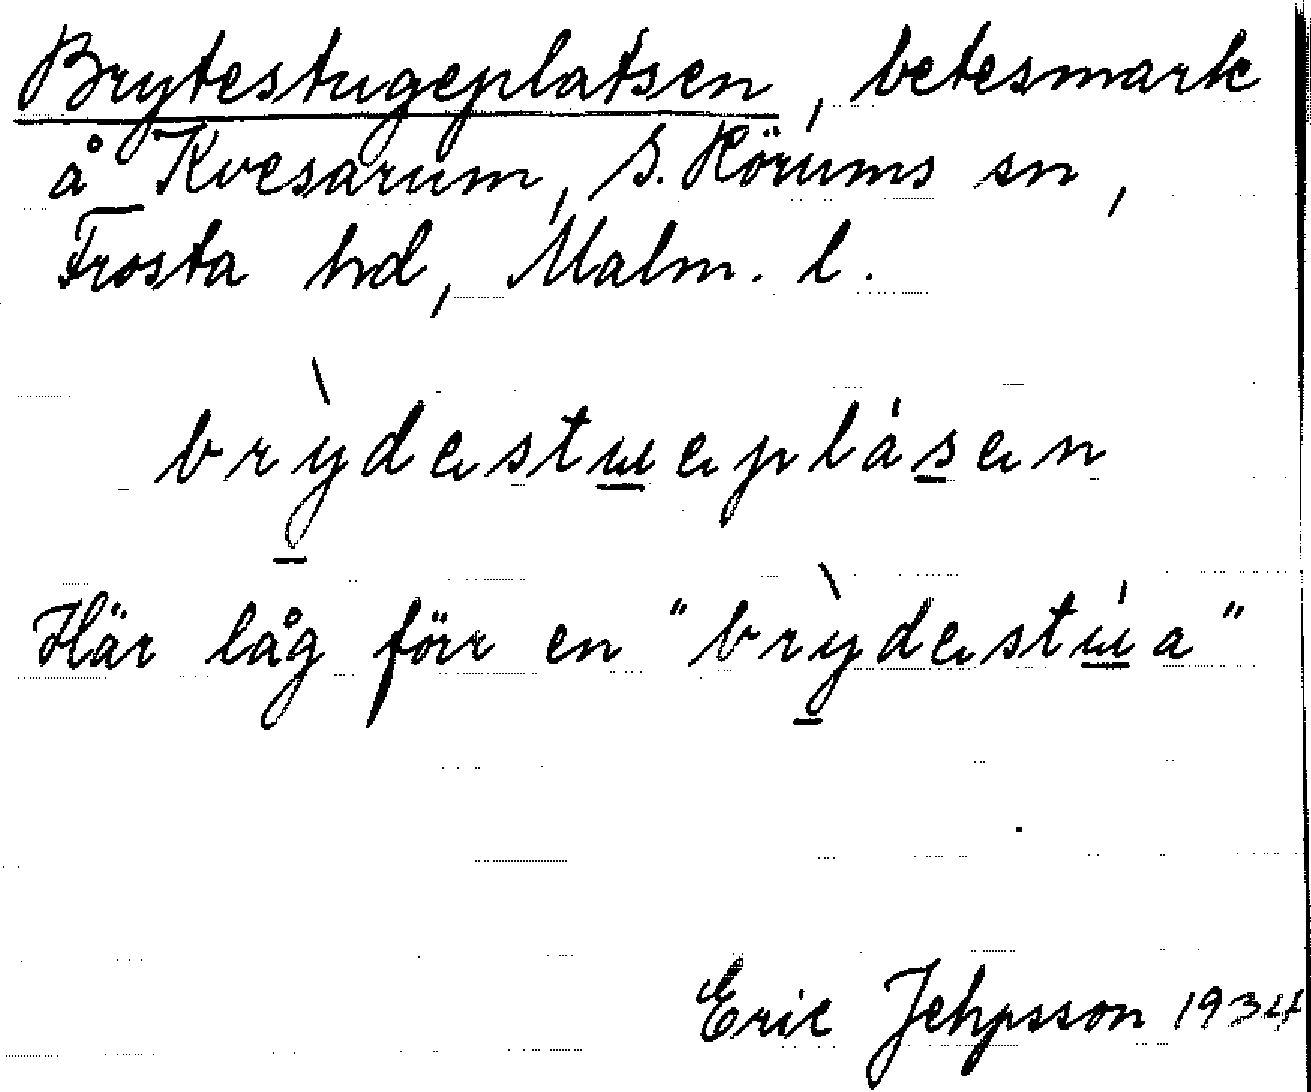 Brytestugeplatsen, betesmark
å Kvesarum, S. Hörums sn,
Frosta hd, Malm. l.
brỳdestɯeplásen
Här låg förr en "brỳdestɯ́a"
Eric Jehpsson 1934